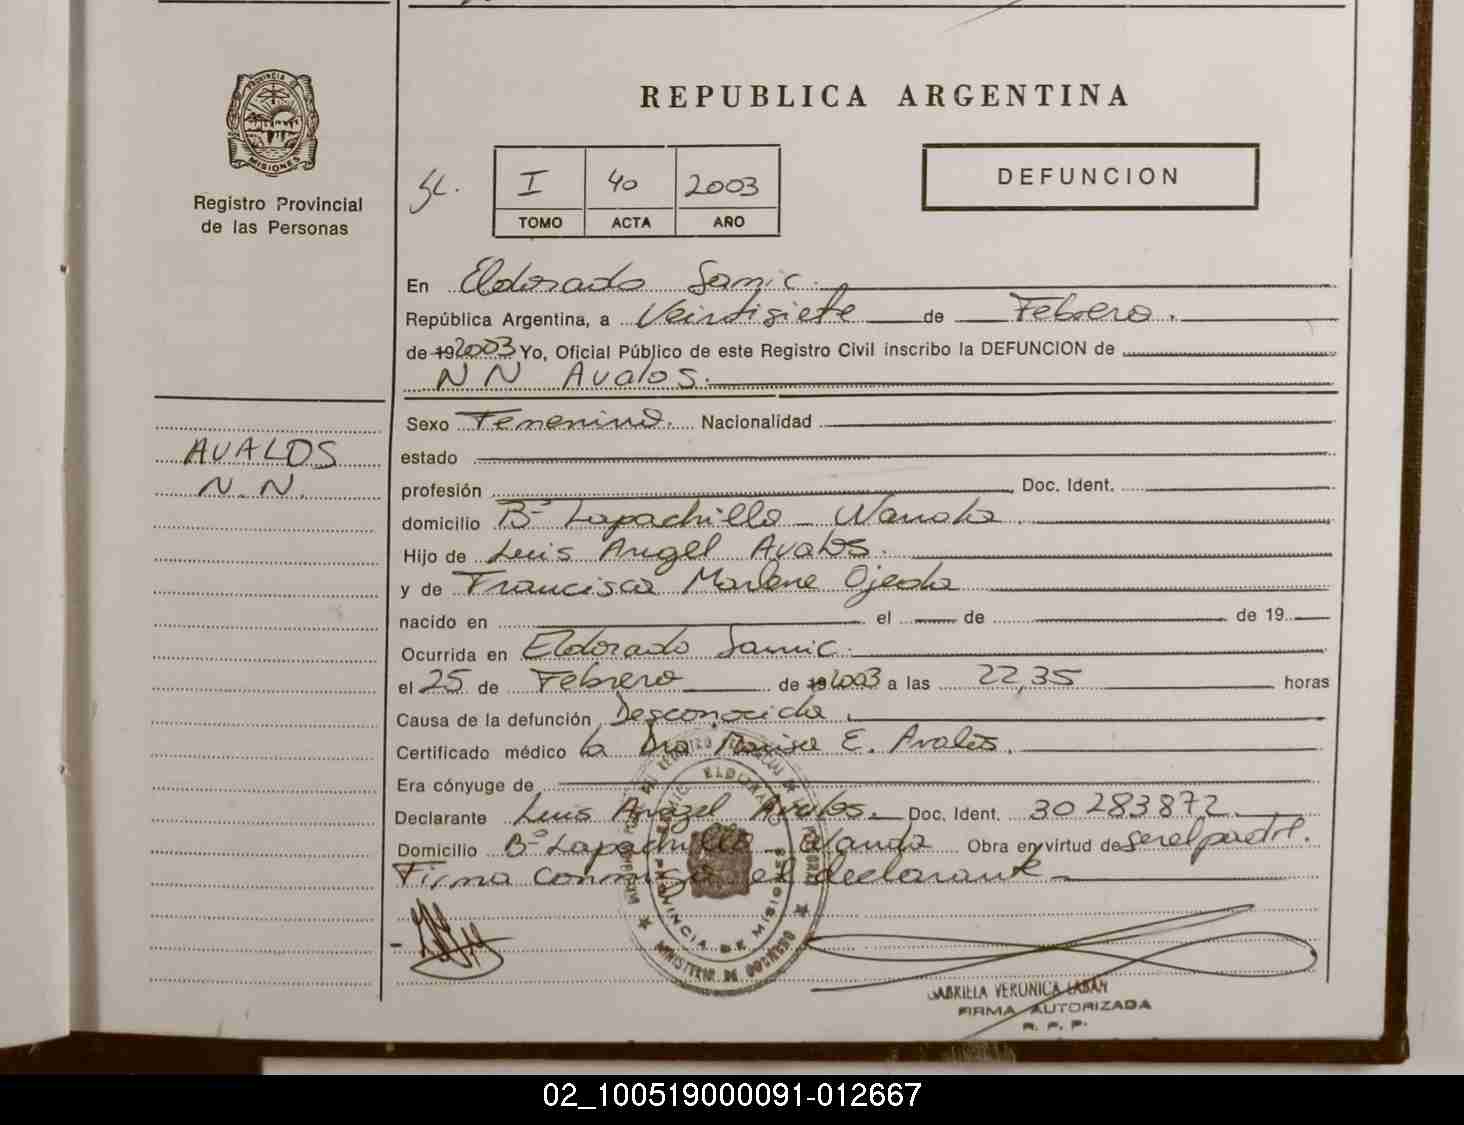 PROVINCIA DE
MISIONES
Registro Provincial
de las Personas
REPUBLICA ARGENTINA
I 40 2003
TOMO ACTA AÑO
DEFUNCION
En Eldorado Samic.
República Argentina, a Veintisiete de Febrero.
de 192003 Yo, Oficial Público de este Registro Civil inscribo la DEFUNCION de
N N Avalos.
AVALOS
N. N.
Sexo Femenino. Nacionalidad
estado
profesión Doc. Ident.
domicilio Bº Lapachillo - Wanda
Hijo de Luis Angel Avalos.
y de Francisca Marlene Ojeda
nacido en el de de 19
Ocurrida en Eldorado Samic.
el 25 de Febrero de 192003 a las 22,35 horas
Causa de la defunción Desconocida.
Certificado médico la Dra Marisa E. Avalos.
Era cónyuge de
Declarante Luis Angel Avalos. Doc. Ident. 30 283872
Domicilio Bº Lapachillo - Wanda Obra en virtud de ser el padre.
Firma conmigo el declarante
ELDORADO
PROVINCIA DE MISIONES
MINISTERIO DE GOBIERNO
GABRIELA VERONICA
FIRMA AUTORIZADA
R. P. P.
02_100519000091-012667